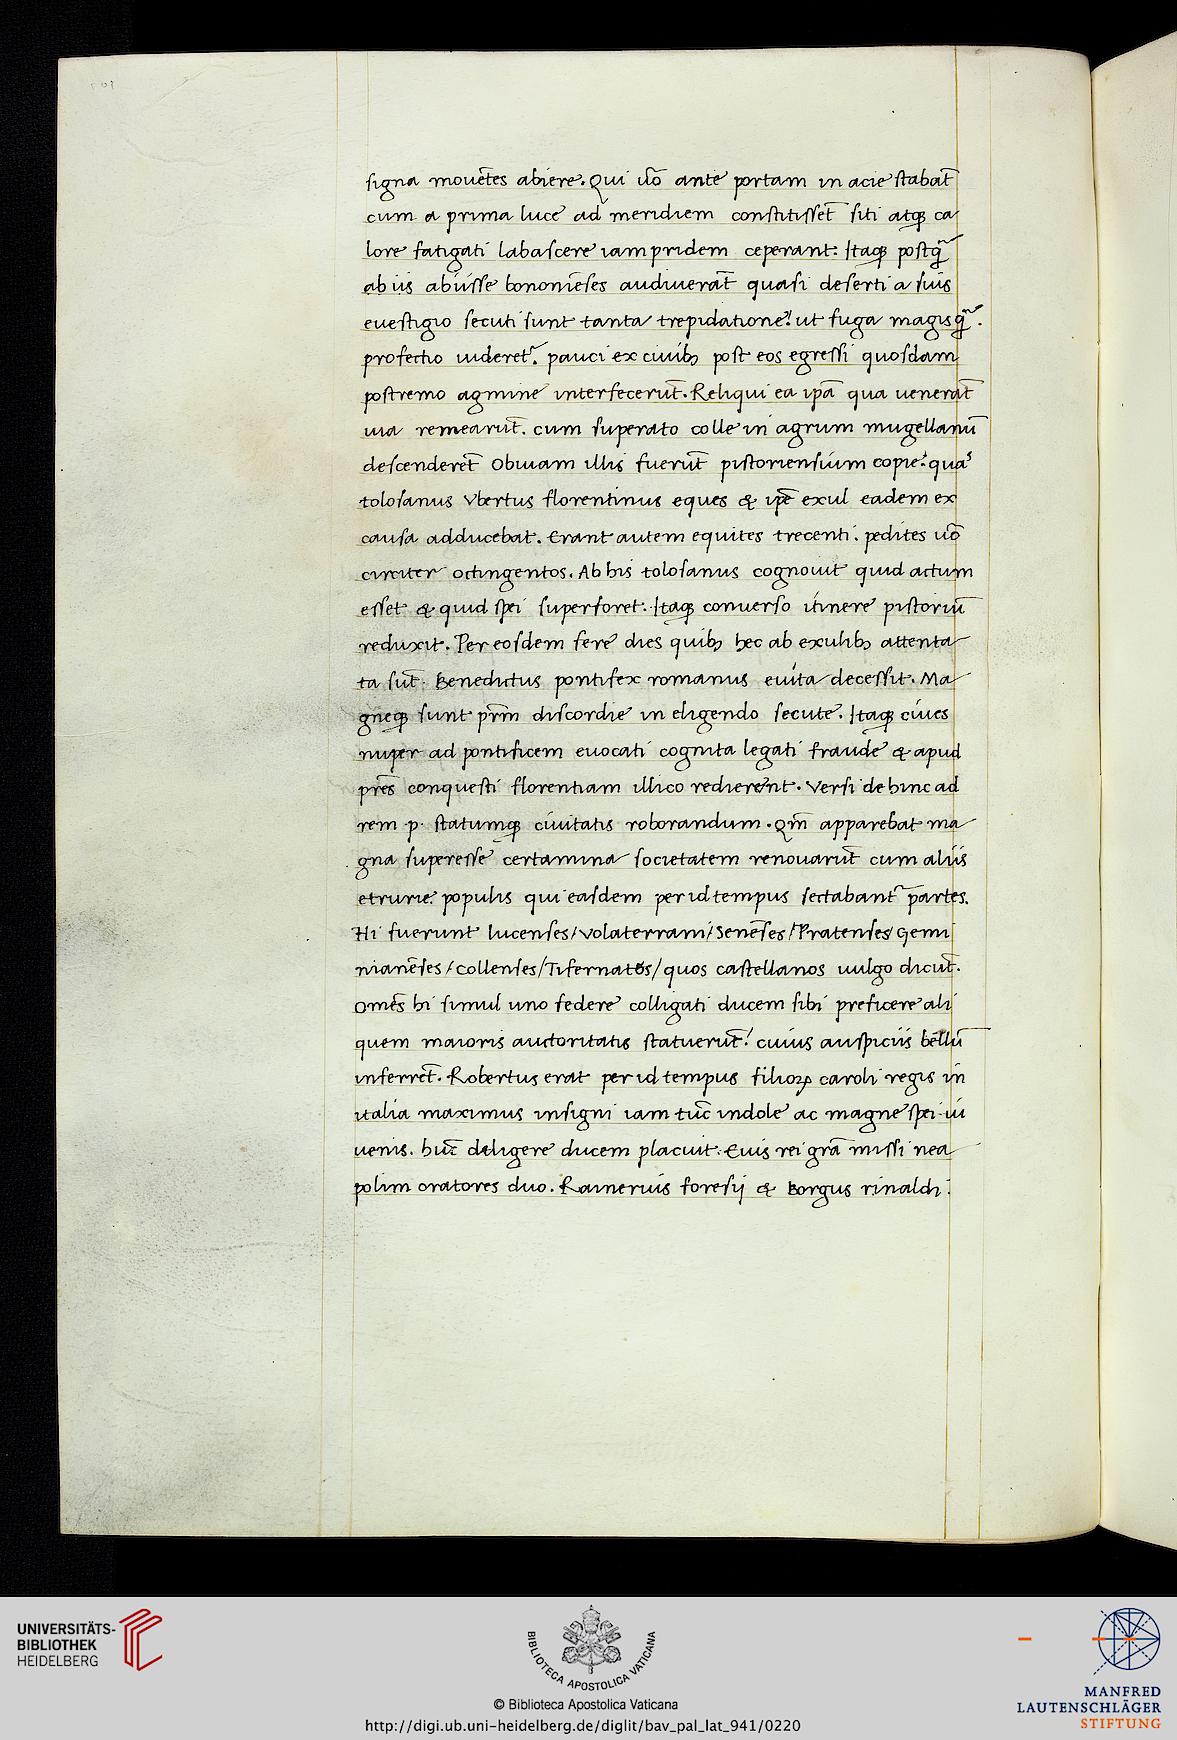 signa mouẽtes abiere. Qui ũo ante portam in acie stabat̃
cum a prima luce ad meridiem constitisset̃ siti atqꝫ ca
lore fatigati labascere iam pridem ceperant: Itaqꝫ postq̃
ab iis abiisse bononiẽses audiuerat̃ quasi deserti a suis
euestigio secuti sunt tanta trepidatione: ut fuga magis q̃.
profectio uideret᷑. pauci ex ciuibꝫ post eos egressi quosdam
postremo agmine interfecerut̃. Reliqui ea ip̃a qua uenerat̃
uia remearut̃. cum superato colle in agrum mugellanũ
descenderet̃ obuiam illis fuerut̃ pistoriensium copie: quas
tolosanus Vbertus florentinus eques & ip̃e exul eadem ex
causa adducebat. Erant autem equites trecenti. pedites uõ
circiter octingentos. Ab his tolosanus cognouit quid actum
esset & quid spei superforet. Itaqꝫ conuerso itinere pistoriũ
reduxit. Per eosdem fere dies quibꝫ hec ab exulibꝫ attenta
ta sut̃. Benedictus pontifex romanus euita decessit. Ma
gneqꝫ sunt pr̃m discordie in eligendo secute. Itaqꝫ ciues
nuper ad pontificem euocati cognita legati fraude & apud
pr̃es conquesti florentiam illico redierent. Versi dehinc ad
rem .p. statumqꝫ ciuitatis roborandum. Qm̃ apparebat ma
gna superesse certamina societatem renouarut̃ cum aliis
etrurie: populis qui easdem per id tempus sectabant᷑ partes.
Hi fuerunt lucenses/ Volaterrani/ Senẽses/ Pratenses/ Gemi
nianẽses/ Collenses/ Tifernatos/ quos castellanos uulgo dicut̃.
Omẽs hi simul uno federe colligati ducem sibi preficere ali
quem maioris auctoritatis statuerut̃: cuius auspiciis bellũ
inferret̃. Robertus erat per id tempus filioꝝ caroli regis in
italia maximus insigni iam tũc indole ac magne spei iu
uenis. hũc deligere ducem placuit: Euis rei gr̃a missi nea
polim oratores duo. Rainerius foresij & Borgus rinaldi.
UNIVERSITÄTS-
BIBLIOTHEK
HEIDELBERG
BIBLIOTECA APOSTOLICA VATICANA
© Biblioteca Apostolica Vaticana
http://digi.ub.uni-heidelberg.de/diglit/bav_pal_lat_941/0220
MANFRED
LAUTENSCHLÄGER
STIFTUNG